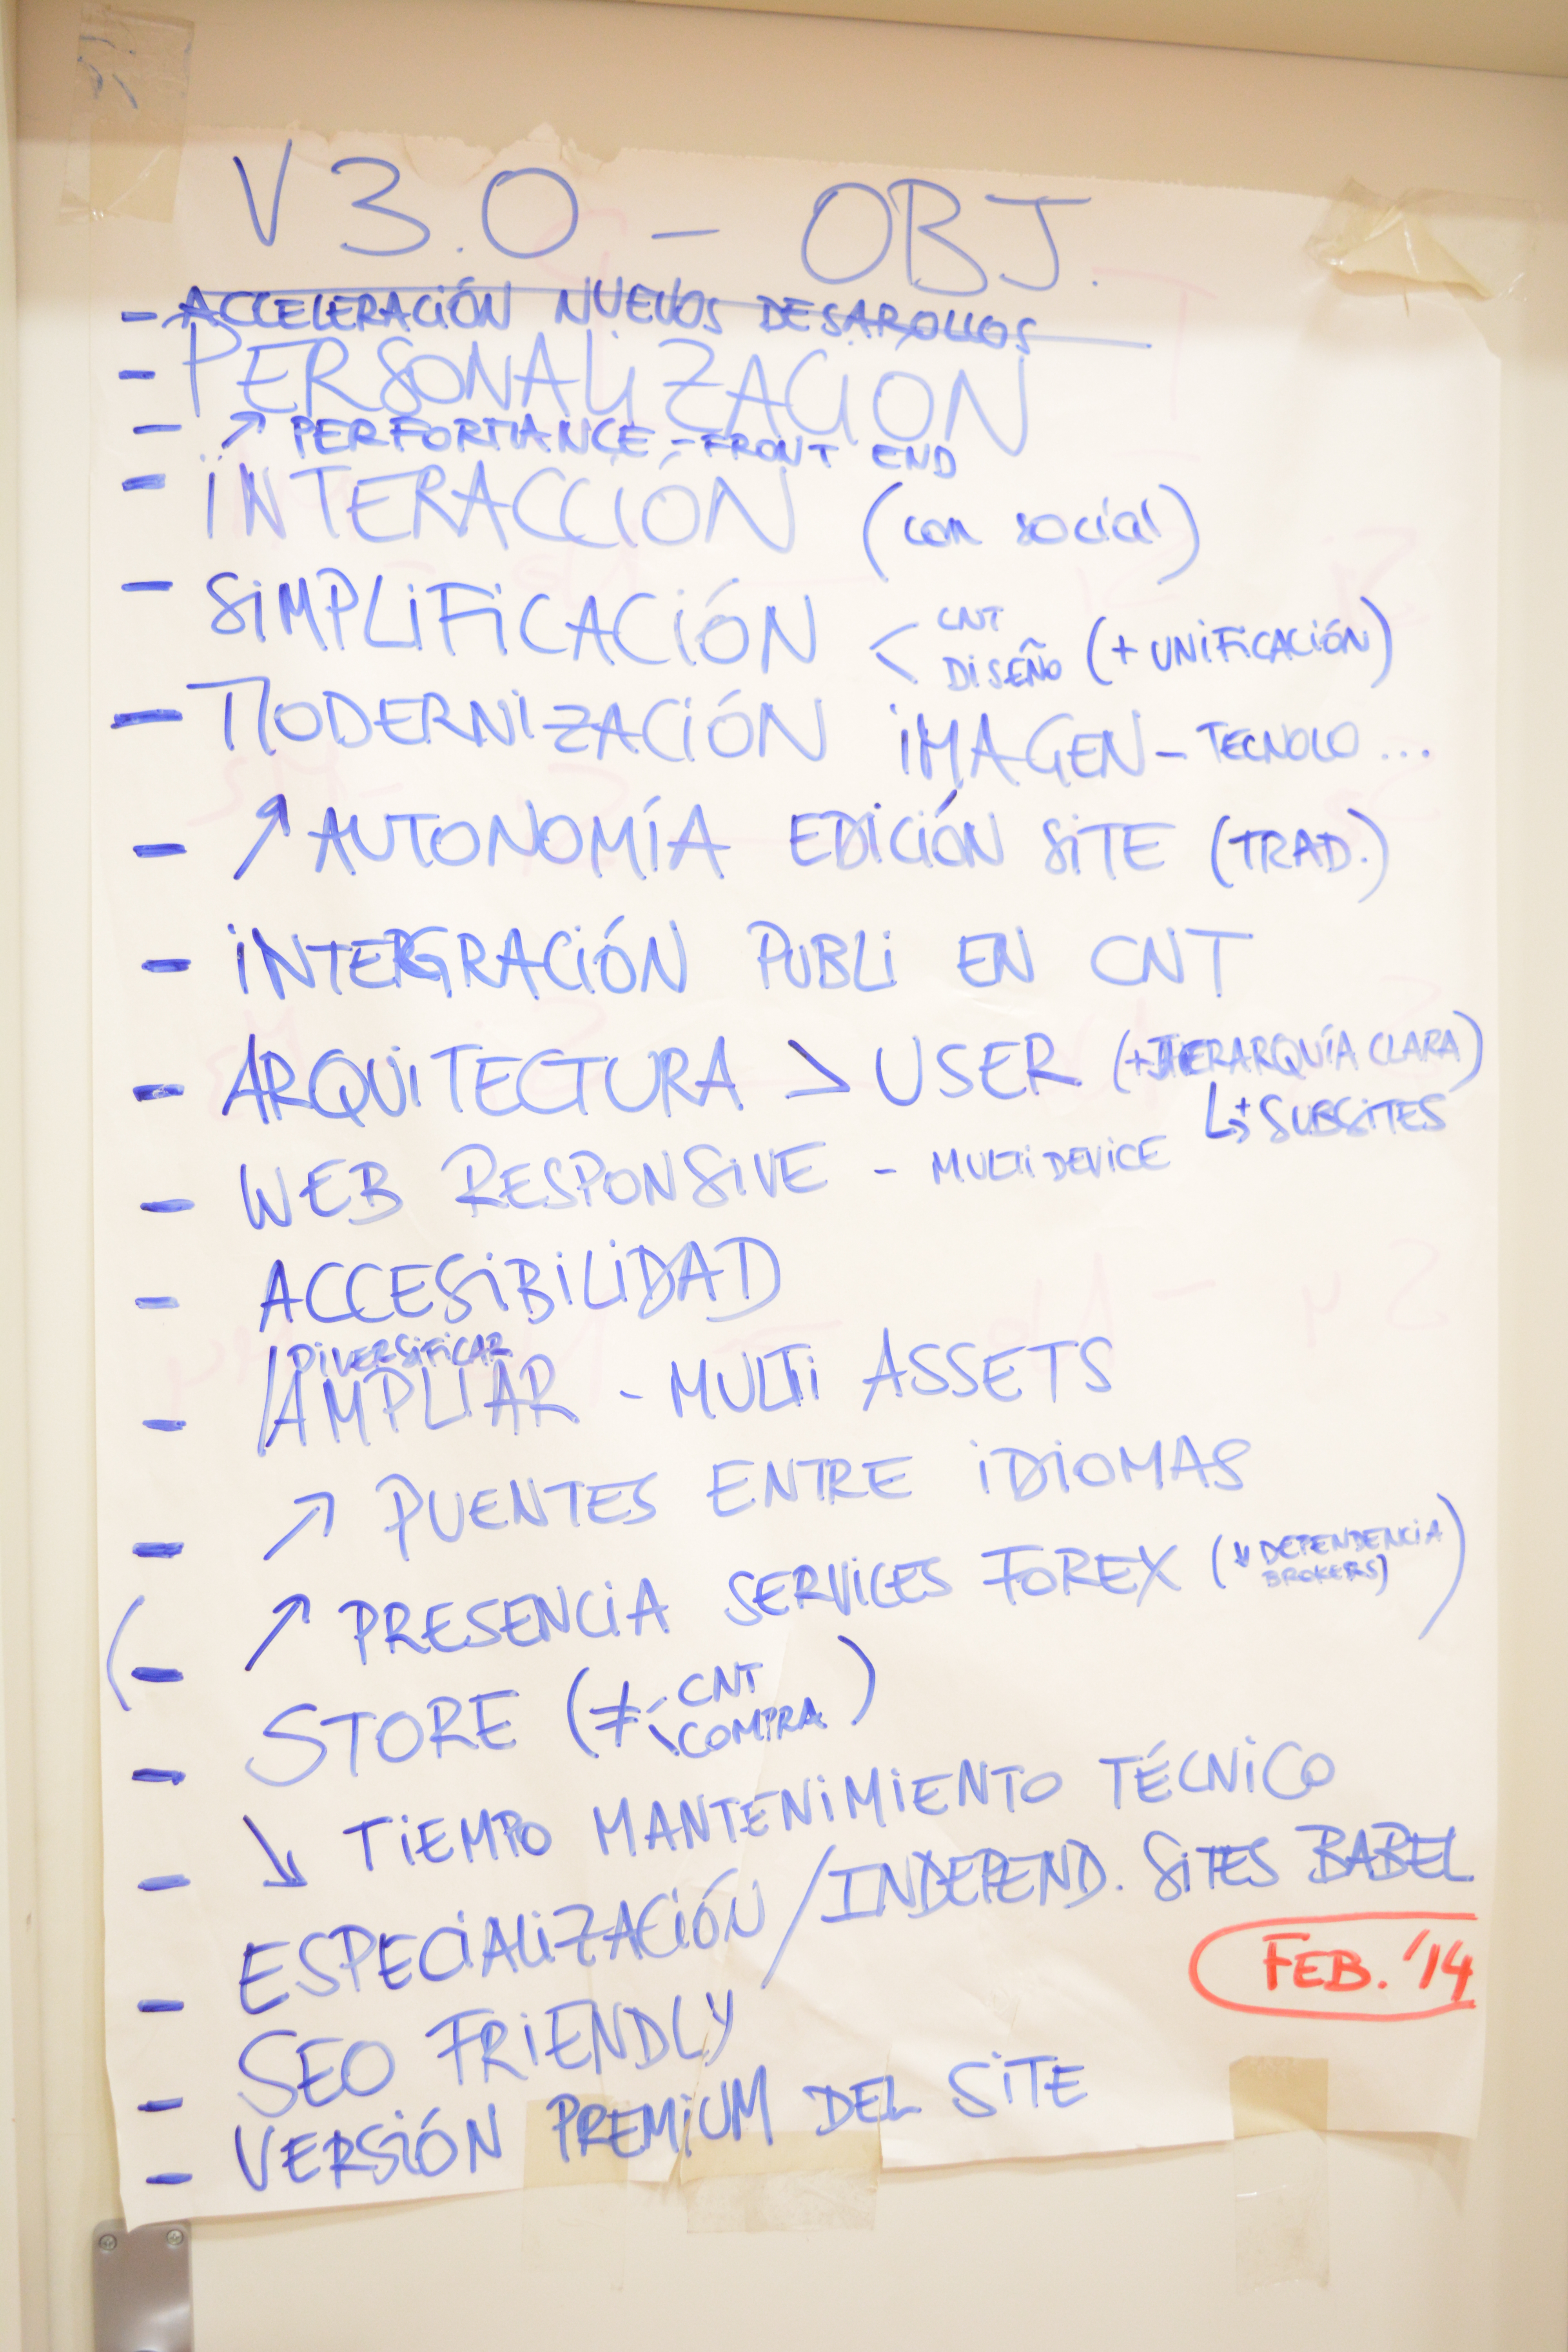 V 3.0 - OBJ.
- ACCELERACIÓN NUEVOS DESAROLLOS
- PERSONALIZACIÓN
- ↗ PERFORMANCE - FRONT END
- INTERACCIÓN (con social)
- SIMPLIFICACIÓN < CNT
DISEÑO (+ UNIFICACIÓN)
- MODERNIZACIÓN IMAGEN - TECNOLO...
- ↗ AUTONOMÍA EDICIÓN SITE (TRAD.)
- INTERGRACIÓN PUBLI EN CNT
- ARQUITECTURA > USER (+ JERARQUÍA CLARA)
↳ + SUBSITES
- WEB RESPONSIVE - MULTIDEVICE
- ACCESIBILIDAD
DIVERSIFICAR
- /AMPLIAR - MULTI ASSETS
- ↗ PUENTES ENTRE IDIOMAS
(- ↗ PRESENCIA SERVICES FOREX (↓ DEPENDENCIA
BROKERS))
- STORE (≠ < CNT
COMPRA)
- ↘ TIEMPO MANTENIMIENTO TÉCNICO
- ESPECIALIZACIÓN / INDEPEND. SITES BABEL
- SEO FRIENDLY
- VERSIÓN PREMIUM DEL SITE
FEB. '14